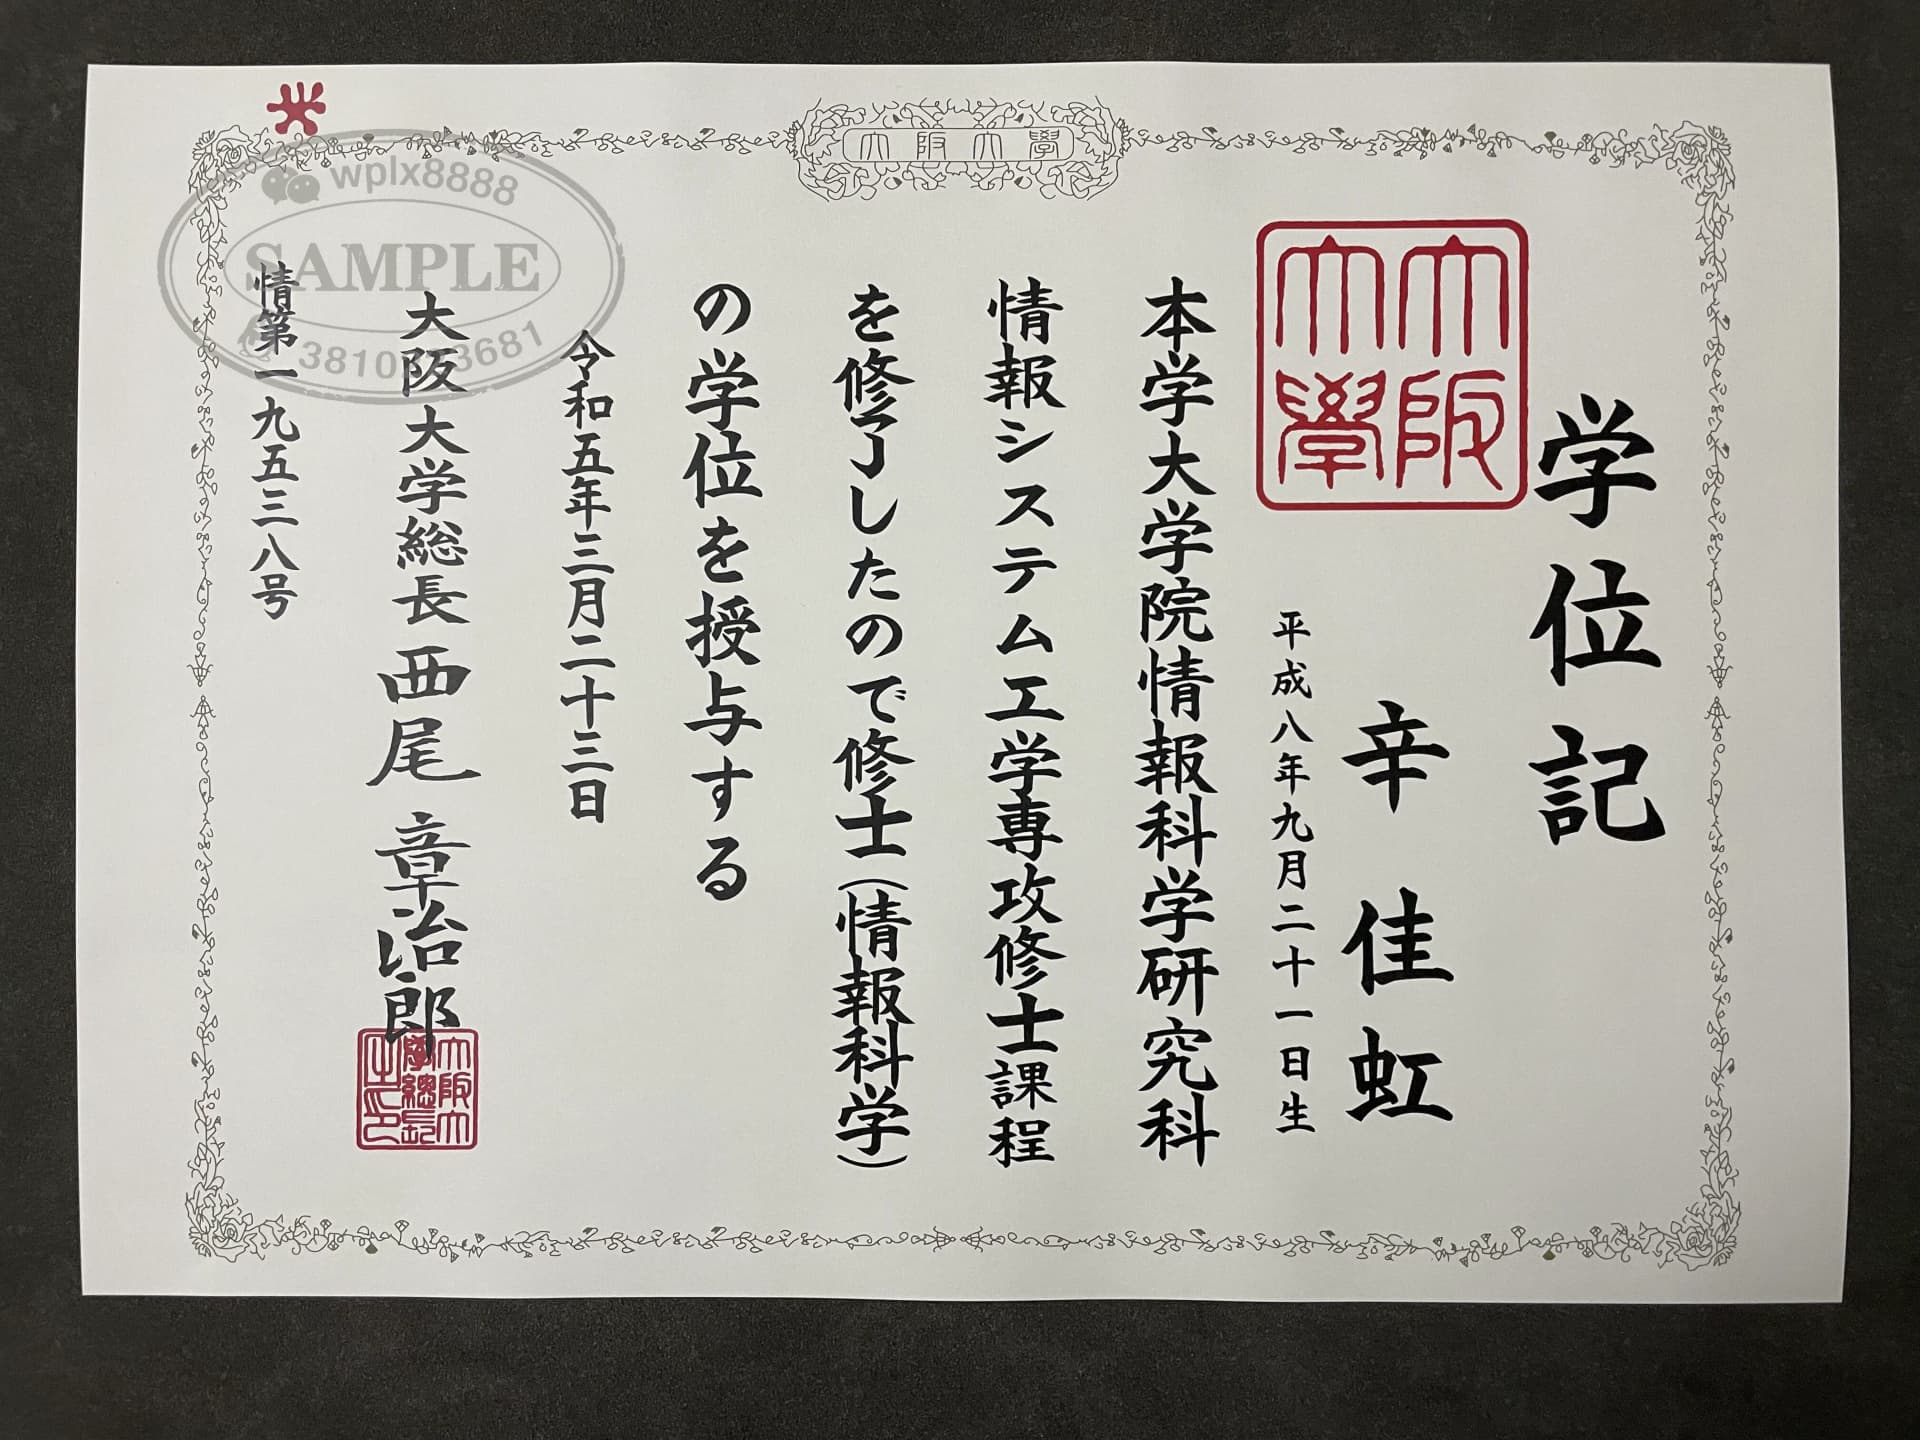 大阪大學
学位記
大阪大學
辛佳虹
平成八年九月二十一日生
本学大学院情報科学研究科
情報システム工学専攻修士課程
を修了したので修士(情報科学)
の学位を授与する
令和五年三月二十三日
大阪大学総長 西尾章治郎
大阪大学總長之印
情第一九五三八号
wplx8888
SAMPLE